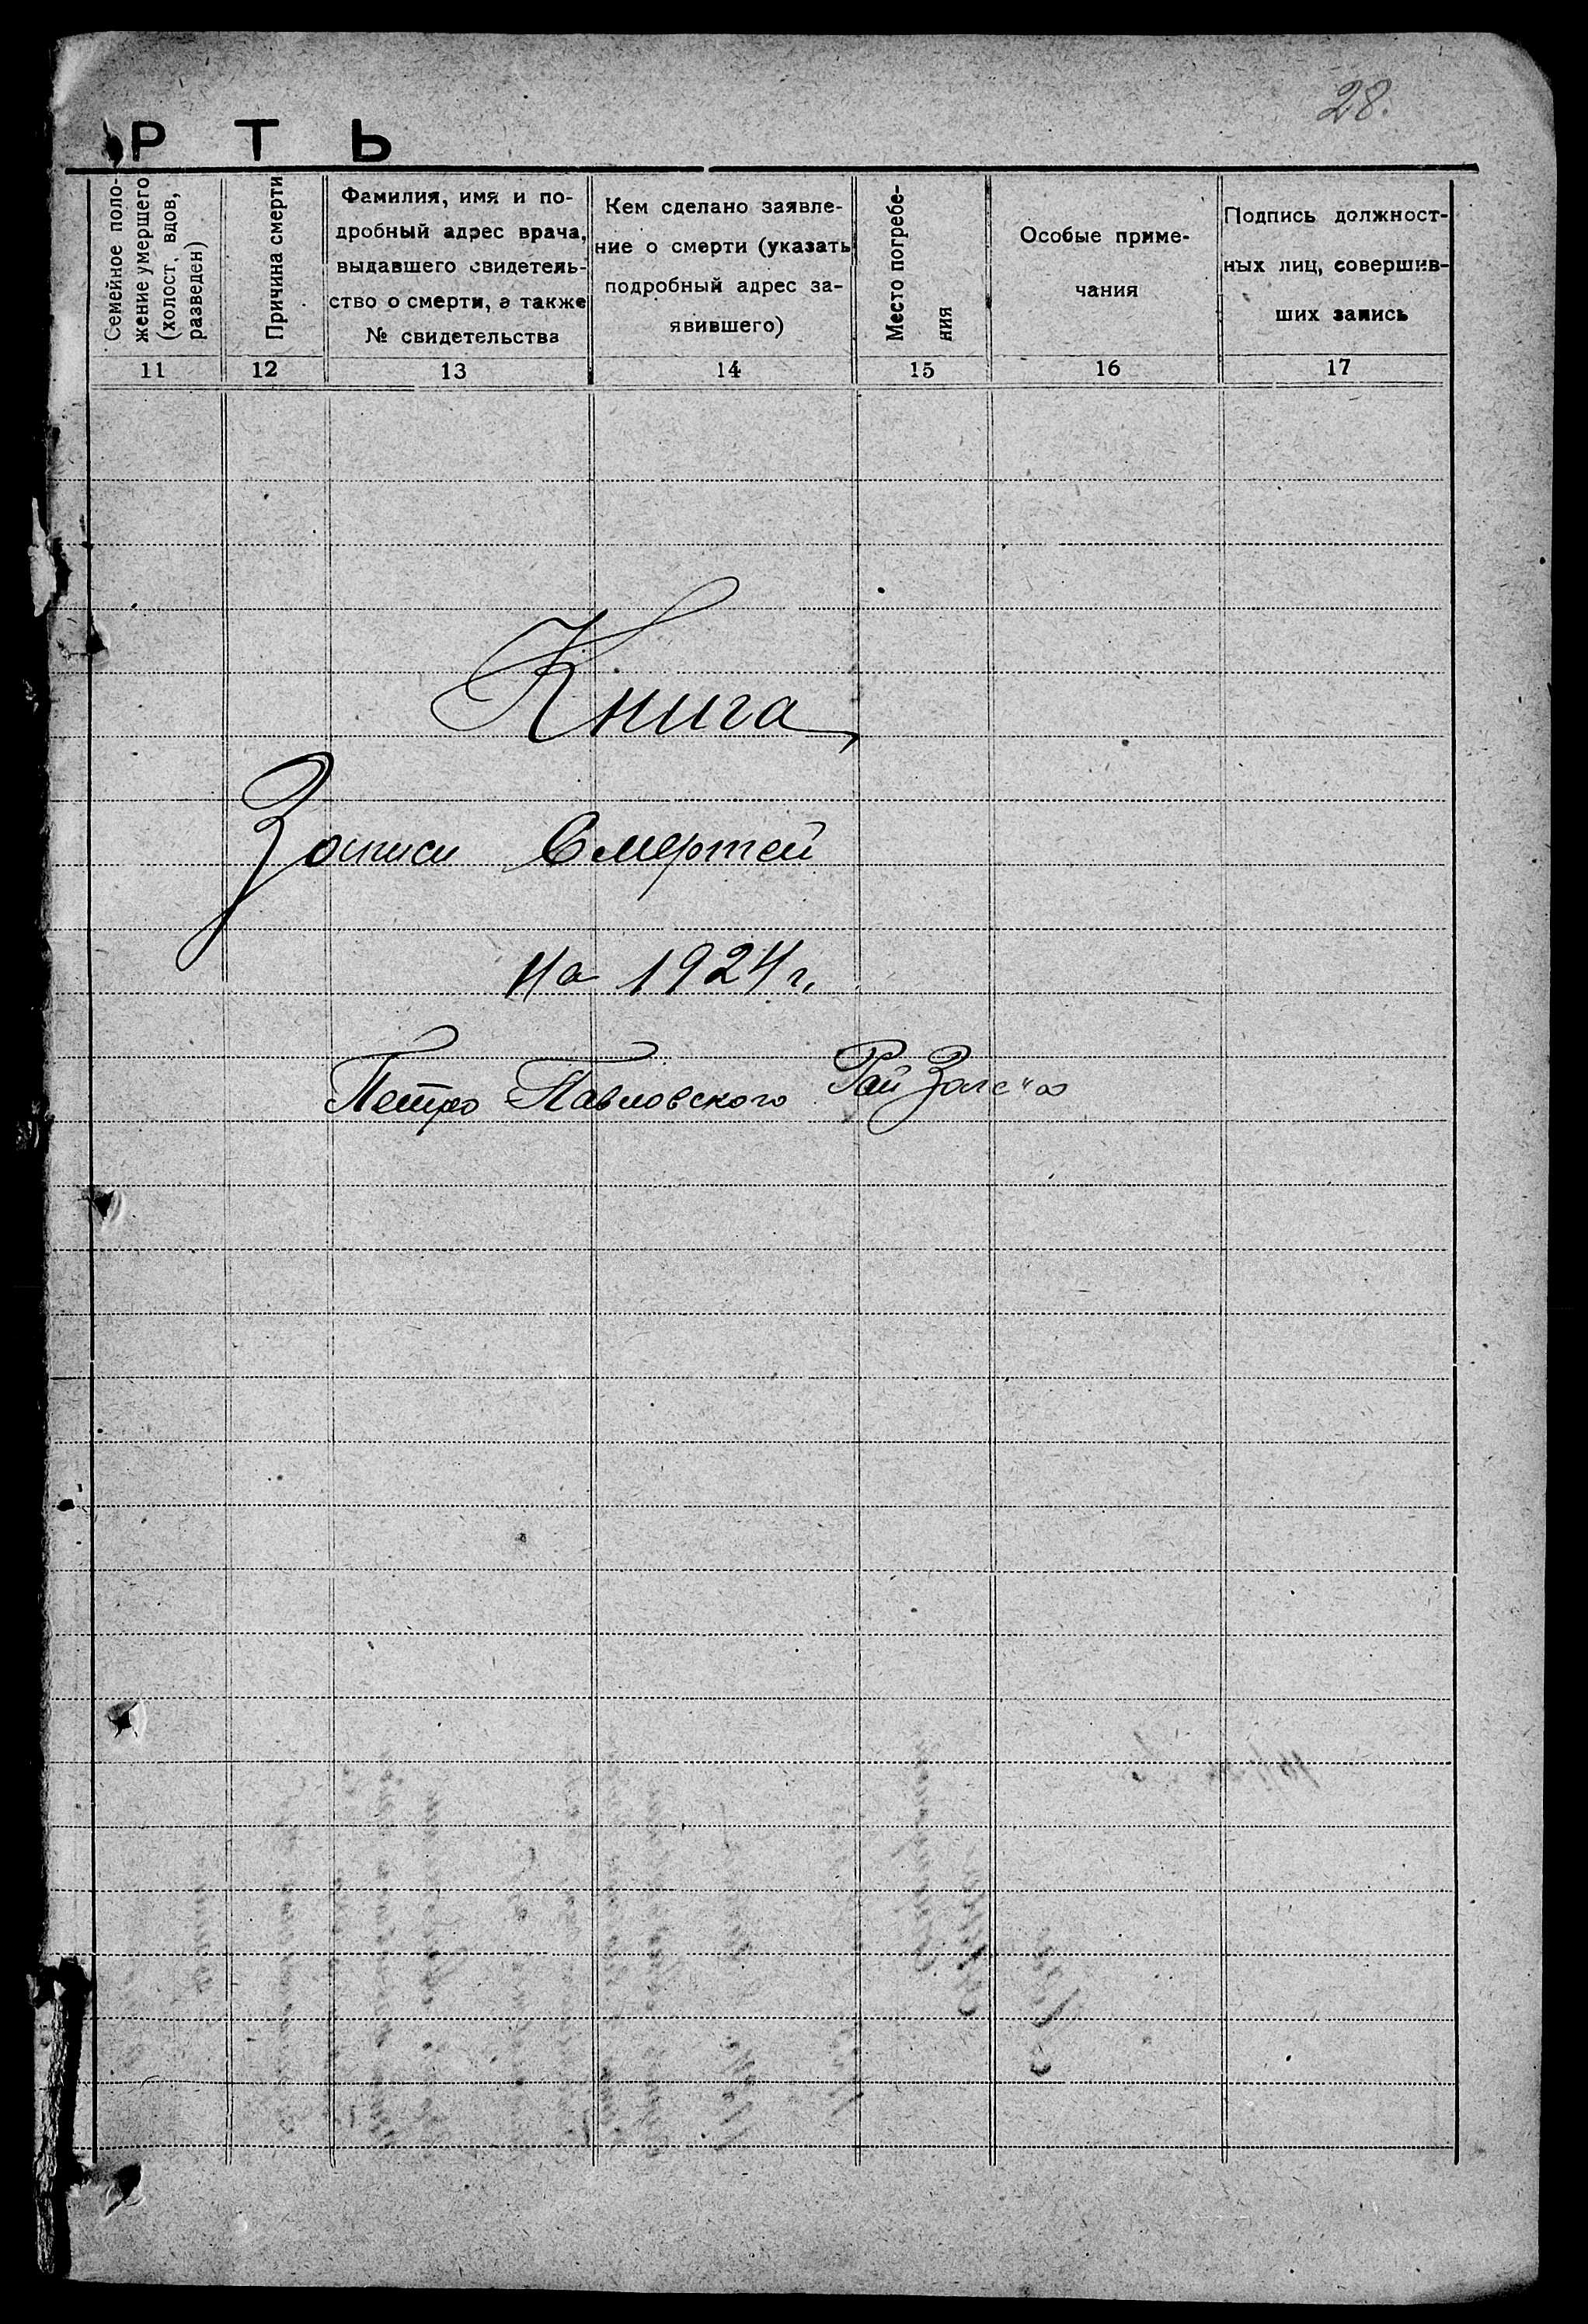 28.
РТЬ
Семейное поло-
жение умершего
(холост, вдов,
разведен)
Причина смерти
Фамилия, имя и по-
дробный адрес врача,
выдавшего свидетель-
ство о смерти, а также
№ свидетельства
Кем сделано заявле-
ние о смерти (указать
подробный адрес за-
явившего)
Место погребе-
ния
Особые приме-
чания
Подпись должност-
ных лиц, совершив-
ших запись
11 12 13 14 15 16 17
Книга
Записи Смертей
На 1924 г.
Петро Павловского Рай